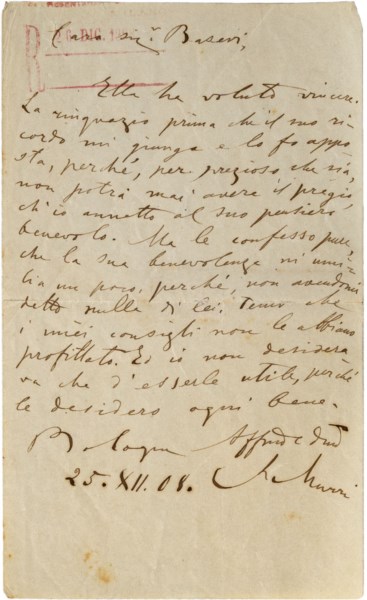 26 DIC. 19
R
Cara sig.ra Basevi,
Ella ha voluto vincere.
La ringrazio prima che il suo ri-
cordo mi giunga e lo fo appo-
sta, perché, per prezioso che sia,
non potrà mai avere il pregio
ch'io annetto al suo pensiero
benevolo. Ma le confesso pure,
che la sua benevolenza mi umi-
lia un poco, perché, non avendomi
detto nulla di lei, temo che
i miei consigli non le abbiano
profittato. Ed io non desidera-
va che d'esserle utile, perché
le desidero ogni bene.
Bologna
25. XII. 08.
Murri